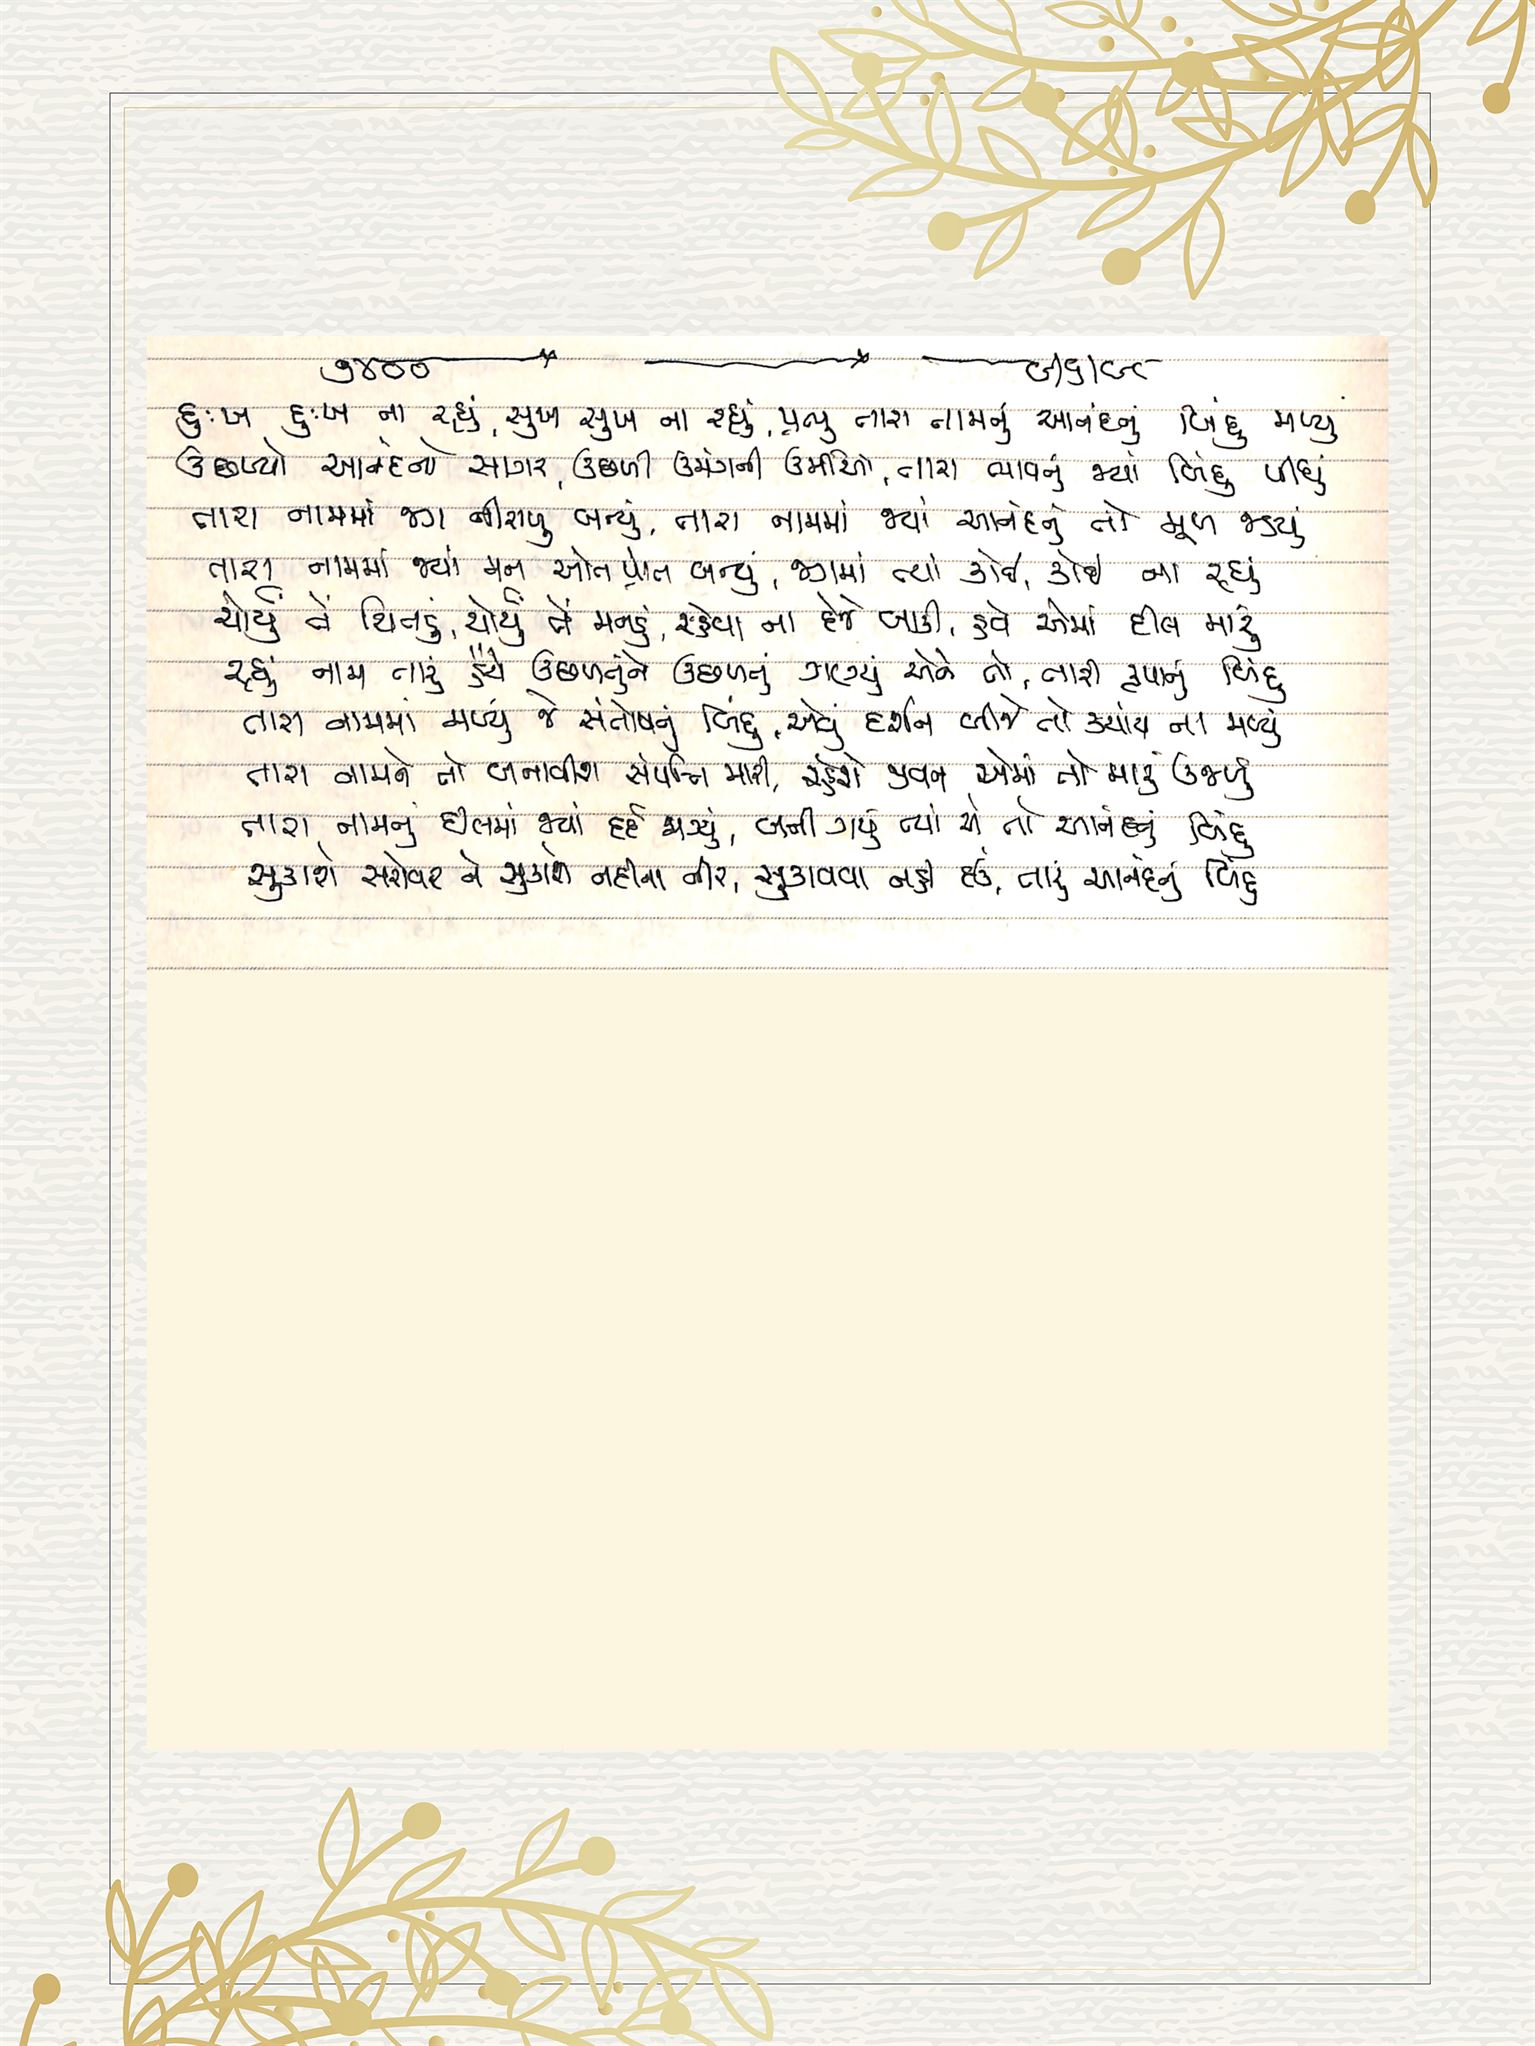 ૭૪૦૦
દુઃખ દુઃખ ના રહ્યું, સુખ સુખ ના રહ્યું, પ્રભુ તારા નામનું આનંદનું બિંદુ મળ્યું
ઉછળ્યો આનંદનો સાગર, ઉછળી ઉમંગની ઉર્મીઓ, તારા ભાવનું જ્યાં બિંદુ પીધું
તારા નામમાં જગ નીરાળુ બન્યું, તારા નામમાં જ્યાં આનંદનું તો મૂળ જડયું
તારા નામમાં જ્યાં મન ઓતપ્રોત બન્યું, જગમાં ત્યાં કોઈ, કોઈ ના રહ્યું
ચોર્યું તેં ચિતડું, ચોર્યું તેં મનડું, રહેવા ના દેજે બાકી, હવે એમાં દીલ મારું
રહ્યું નામ તારું હૈયે ઉછળતુંને ઉછળતું ગણ્યું એને તો, તારી કૃપાનું બિંદુ
તારા નામમાં મળ્યું જે સંતોષનું બિંદુ, એવું દર્શન બીજે તો ક્યાંય ના મળ્યું
તારા નામને તો બનાવીશ સંપત્તિ મારી, રહેશે જીવન એમાં તો મારું ઉજળું
તારા નામનું દીલમાં જ્યાં દર્દ જાગ્યું, બની ગયું ત્યાં એ તો આનંદનું બિંદુ
સુકાશે સરોવર ને સુકાશે નદીના નીર, સુકાવવા નહીં દઉં, તારું આનંદનું બિંદુ